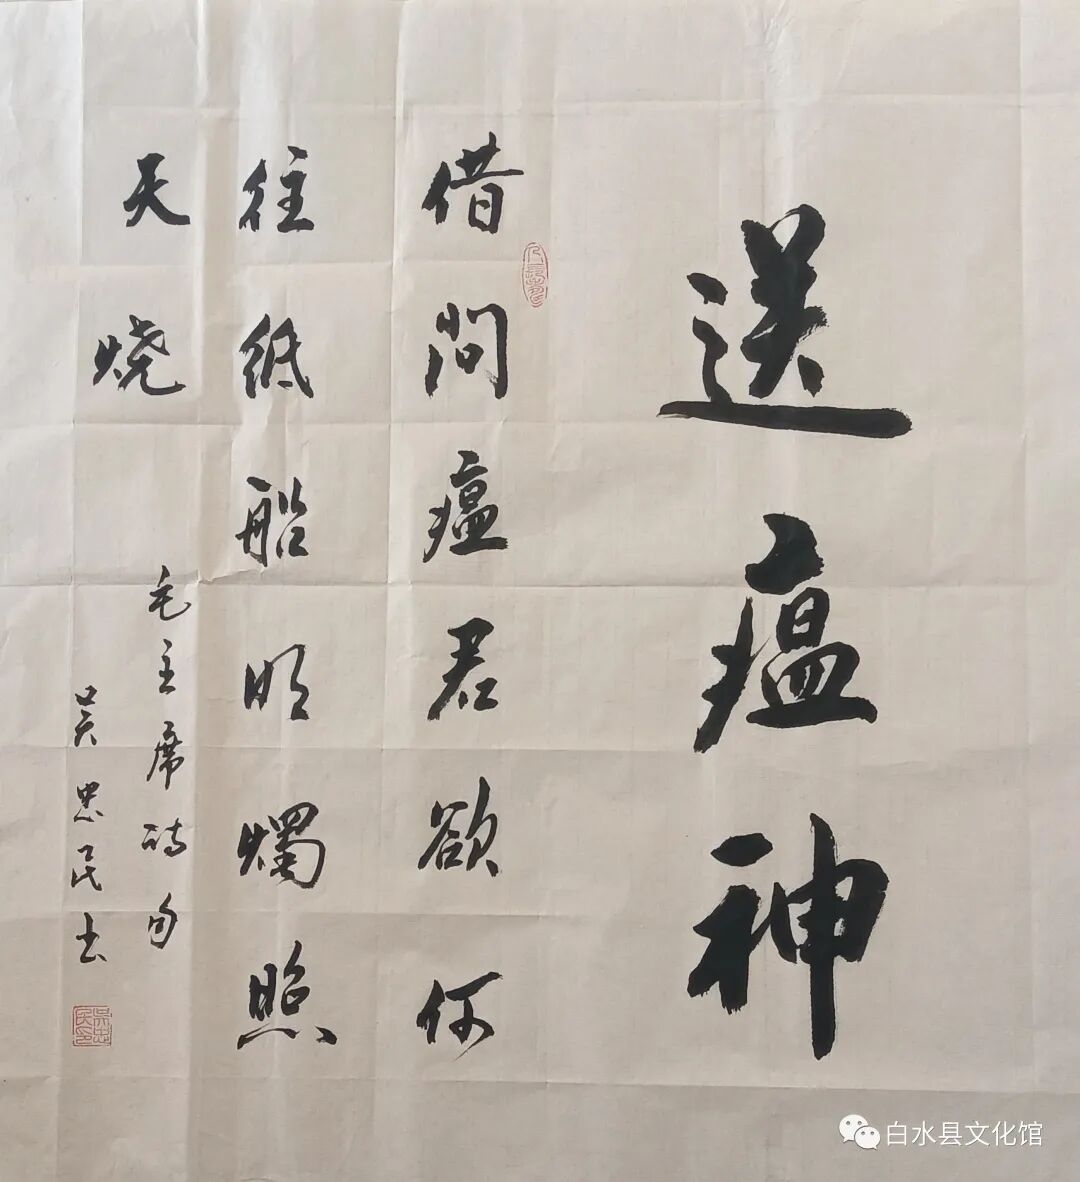 送瘟神
借问瘟君欲何
往纸船明烛照
天烧
毛主席诗句
吴忠民书
吴忠民印
白水县文化馆